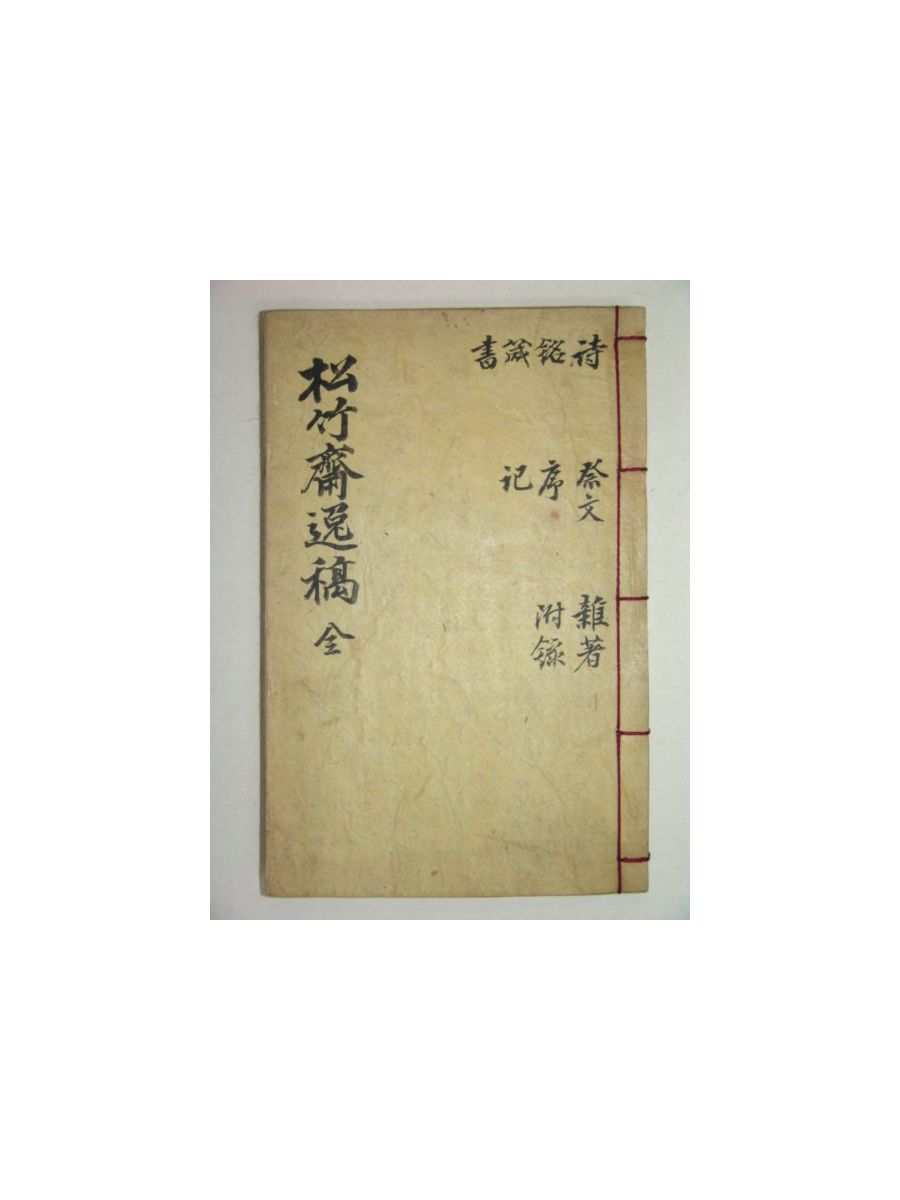 詩銘箴書
祭文序記
雜著附錄
松竹齋逸稿 全